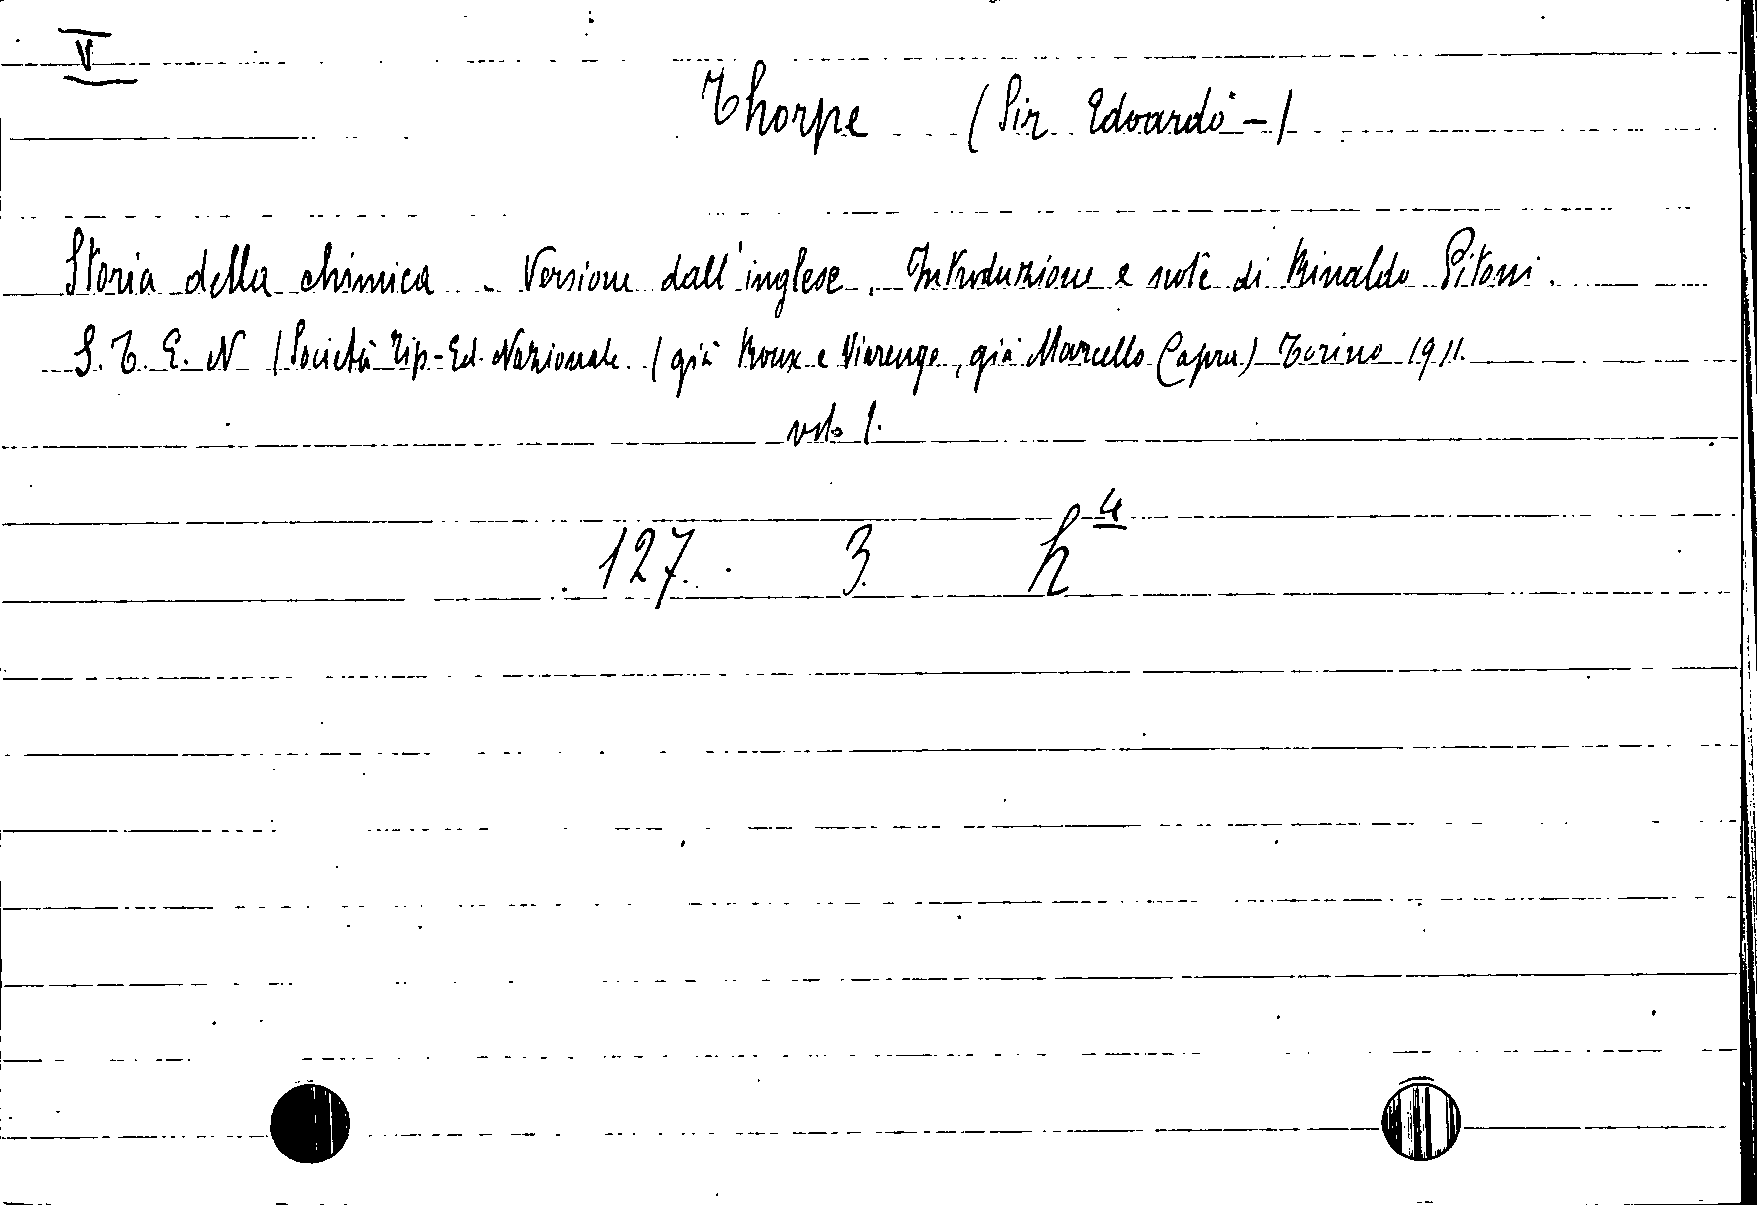 V
Thorpe (Sir Edoardo -)
Storia della chimica - Versione dall'inglese. Introduzione e note di Rinaldo Pitoni.
S. T. E. N (Società Tip-Ed. Nazionale. (già Roux e Viarengo, già Marcello Capra) Torino 1911.
vol. 1.
127. 3. h 4